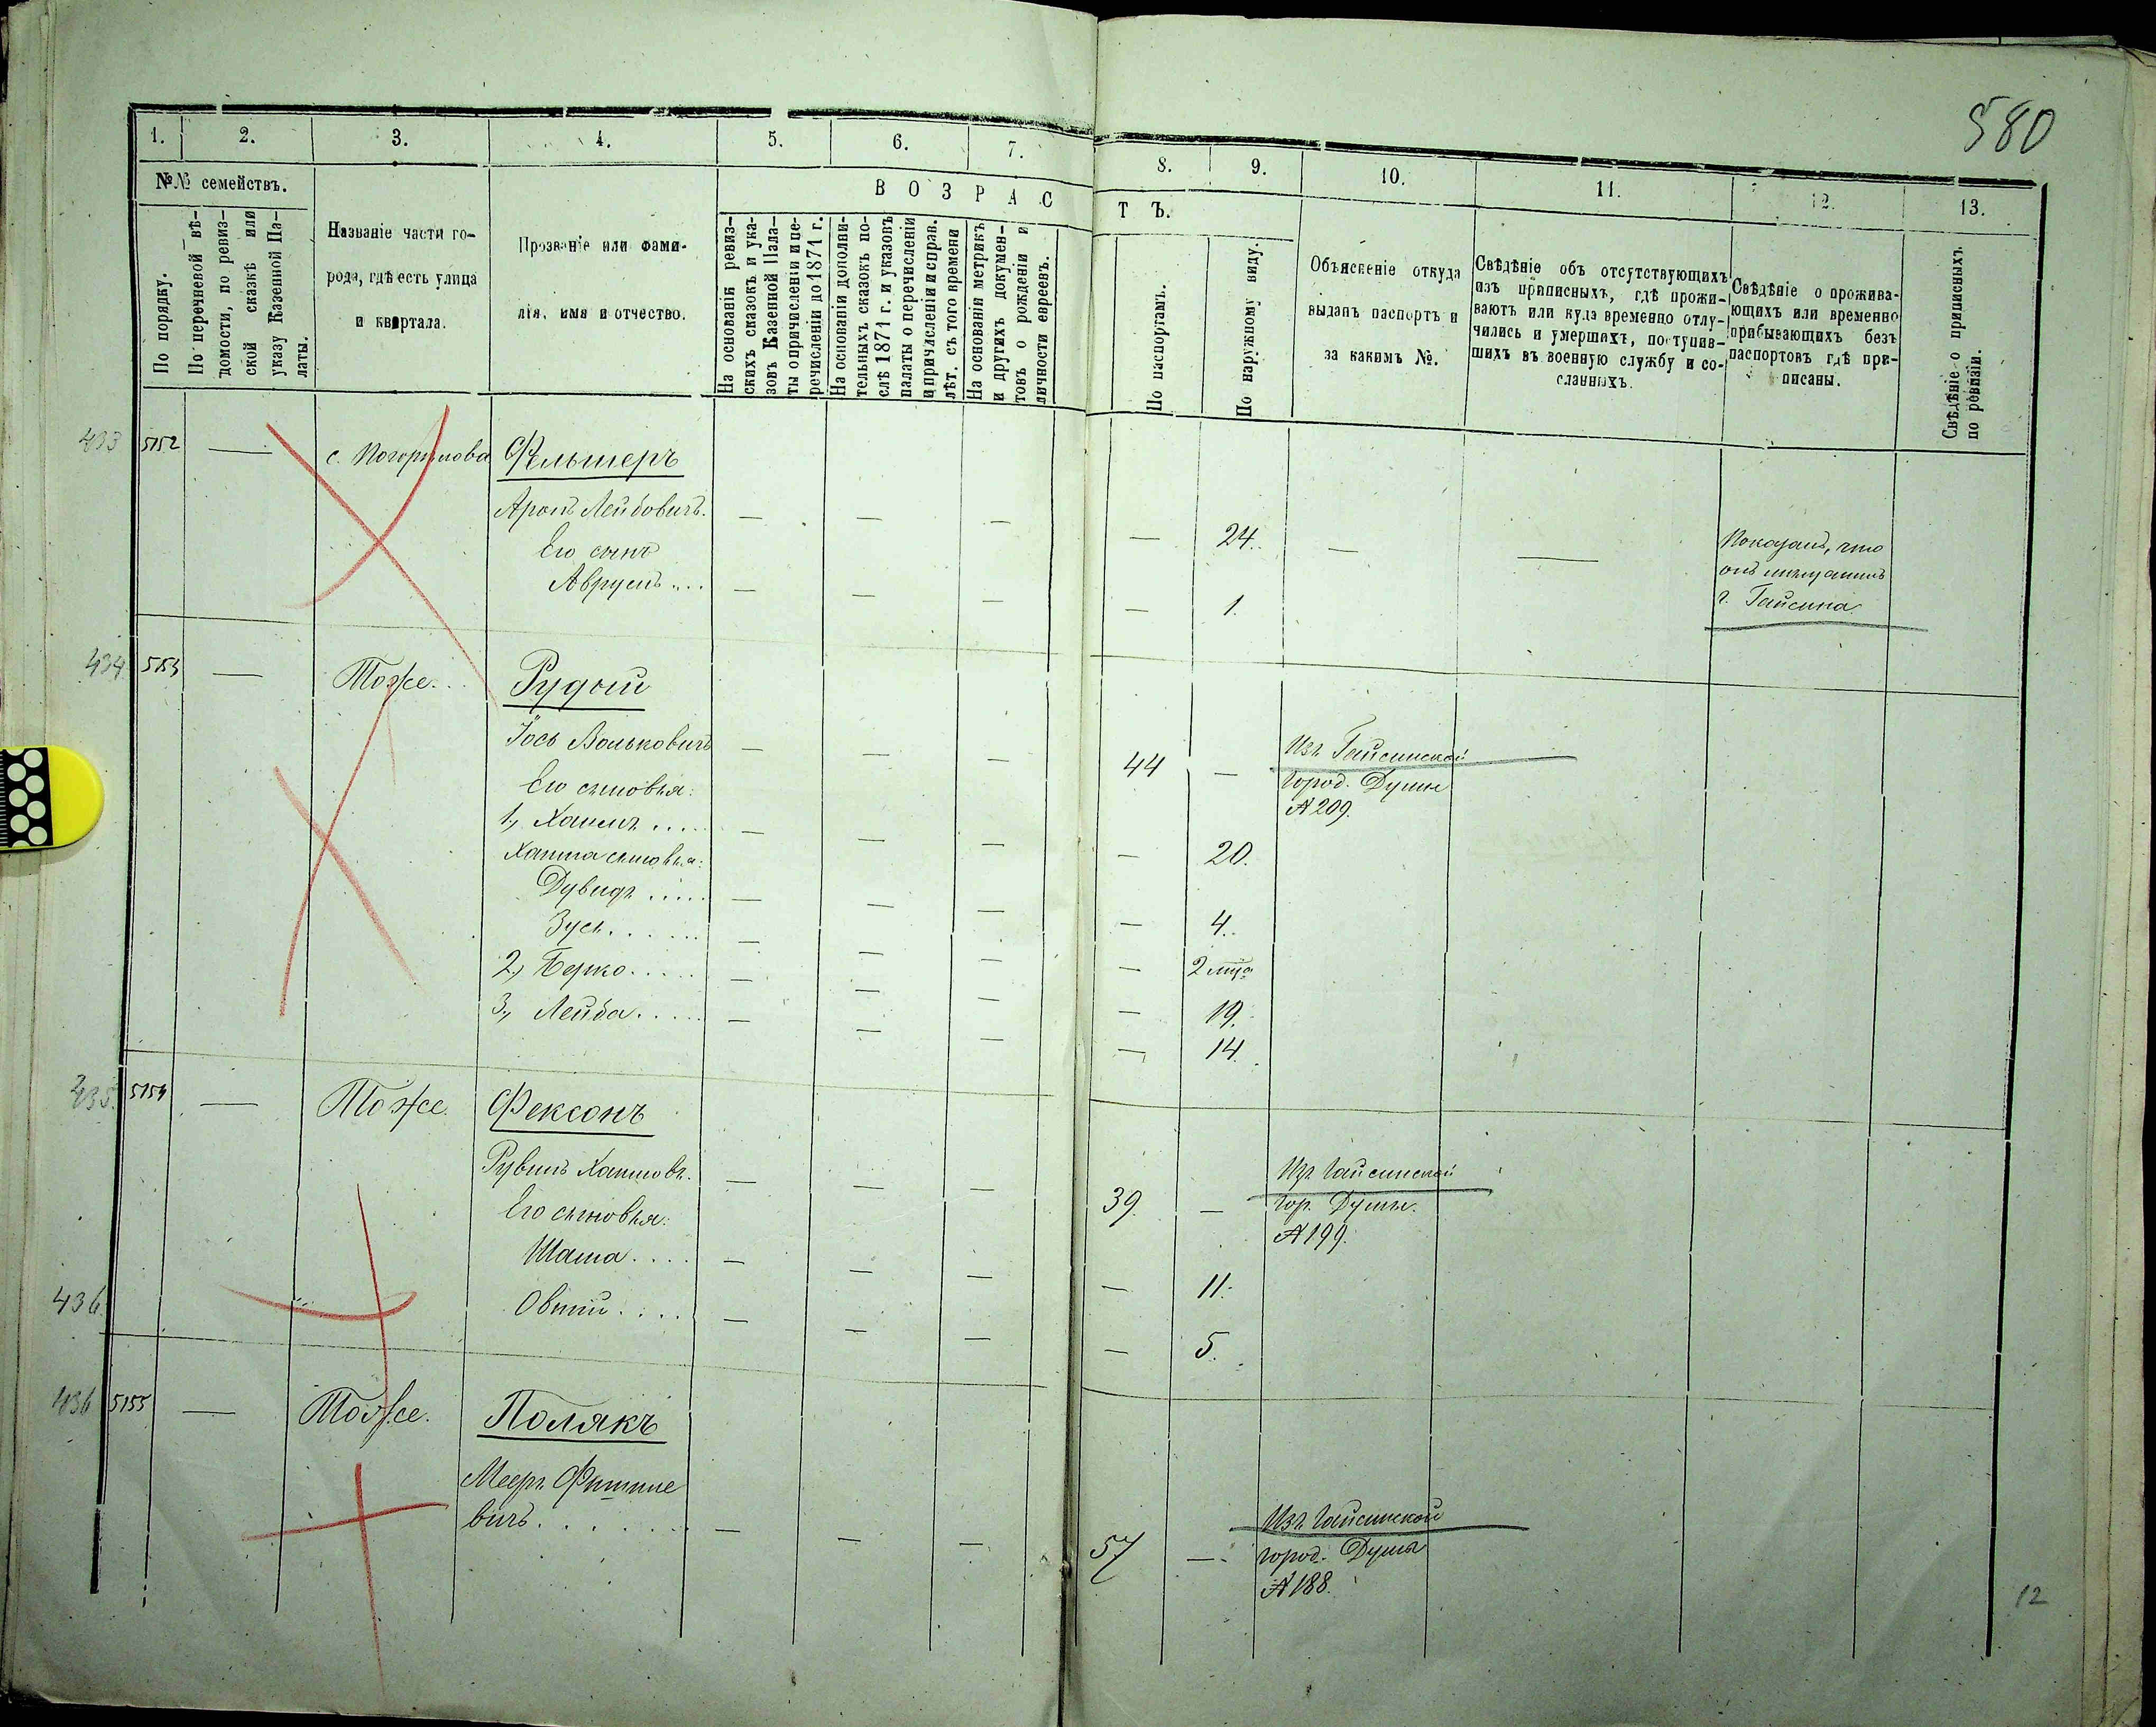 580
1. 2. 3. 4. 5. 6. 7. 8. 9. 10. 11. 12. 13.
№№ семействъ.
По порядку.
По перечневой вѣ-
домости, по ревиз-
ской сказкѣ или
указу Казенной Па-
латы.
Названіе части го-
рода, гдѣ есть улица
и квартала.
Прозваніе или фами-
лія, имя и отчество.
ВОЗРАСТЪ.
На основаніи ревиз-
скихъ сказокъ и ука-
зовъ Казенной Пала-
ты о причисленіи и пе-
речисленіи до 1871 г.
На основаніи дополни-
тельныхъ сказокъ по-
слѣ 1871 г. и указовъ
палаты о перечисленіи
и причисленіи и справ.
лѣт. съ того времени
На основаніи метрикъ
и другихъ докумен-
товъ о рожденіи и
личности евреевъ.
По паспортамъ.
По наружному виду.
Объясненіе откуда
выданъ паспортъ и
за какимъ №.
Свѣдѣніе объ отсутствующихъ
изъ приписныхъ, гдѣ прожи-
ваютъ или куда временно отлу-
чились и умершихъ, поступив-
шихъ въ военную службу и со-
сланныхъ.
Свѣдѣніе о прожива-
ющихъ или временно
прибывающихъ безъ
паспортовъ гдѣ при-
писаны.
Свѣдѣніе о приписныхъ
по ревизіи.
433 5152 — с. Погорѣлова Фельшеръ
Аронъ Лейбовичъ. — — — — 24. — —
Его сынъ
Аврумъ .... — — — — 1.
Показалъ, что
онъ мѣщанинъ
г. Гайсина
434 5153 — Тоже... Рудый
Іось Вольковичъ — — — 44 —
Изъ Гайсинской
Город. Думы
№ 209.
Его сыновья:
1, Хаимъ ..... — — — — 20.
Хаима сыновья:
Дувидъ ..... — — — — 4.
Зусь...... — — — — 2 мца
2, Берко..... — — — — 19.
3, Лейба..... — — — — 14.
435. 5154 — Тоже. Фексонъ
Рувинъ Хаимовъ. — — — 39 —
Изъ Гайсинской
Гор. Думы.
№ 199.
Его сыновья:
Шама.... — — — — 11.
436 .... — — — — 5.
436 5155 — Тоже. Полякъ
Мееръ
вичъ....... — — — 57 —
Изъ Гайсинской
город. Думы
№ 188.
12